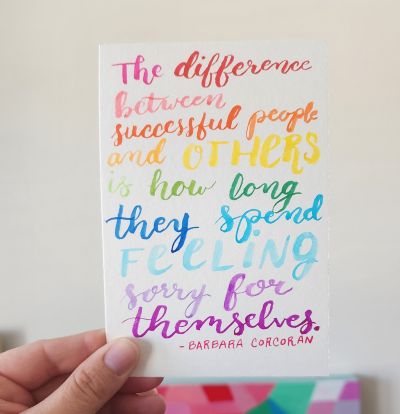 The difference
between
successful people
and OTHERS
is how long
they spend
FEELING
sorry for
themselves.
-BARBARA CORCORAN